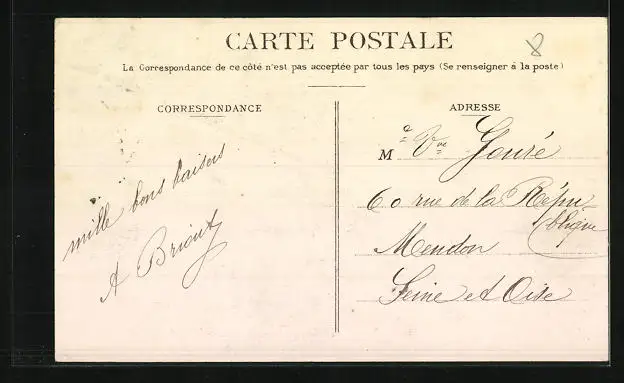 8
CARTE POSTALE
La Correspondance de ce côté n'est pas acceptée par tous les pays (Se renseigner à la poste)
CORRESPONDANCE
mille bons baisers
A Briout
ADRESSE
Me Vve Gouré
60 rue de la Répu
blique
Meudon
Seine et Oise